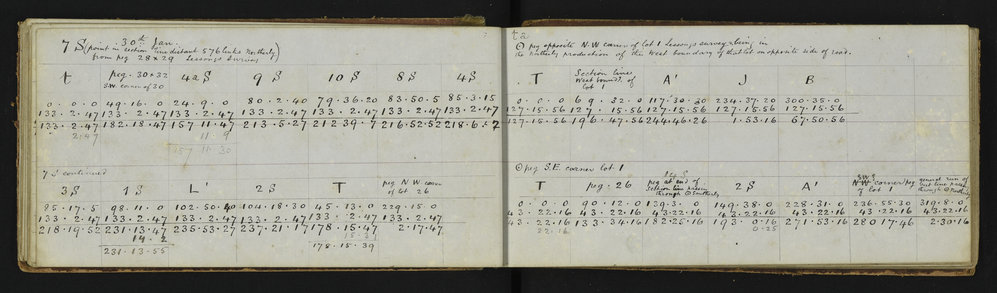 7 S (point in section line distant 576 links Northerly
from peg 28 x 29 Lessongs Survey)
30th Jan.
t peg. 30 x 32 4a S 9 S 10 S 8 S 4 S
S.W. corner of 30
0 . 0 . 0 49 . 16 . 0 24 . 9 . 0 80 . 2 . 40 79 . 36 . 20 83 . 50 . 5 85 . 3 . 15
133 . 2 . 47 133 . 2 . 47 133 . 2 . 47 133 . 2 . 47 133 . 2 . 47 133 . 2 . 47 133 . 2 . 47
133 . 2 . 47 182 . 18 . 47 157 . 11 . 47 213 . 5 . 27 212 39 . 7 216 . 52 . 52 218 . 6 . 2
2 . 47
157 11 . 30
7 S continued
3 S 1 S L' 2 S T peg N W corner
of lot 26
85 . 17 . 5 98 . 11 . 0 102 . 50 . 40 104 . 18 . 30 45 . 13 . 0 229 . 15 . 0
133 . 2 . 47 133 . 2 . 47 133 . 2 . 47 133 . 2 . 47 133 . 2 . 47 133 . 2 . 47
218 . 19 . 52 231 . 13 . 47 235 . 53 . 27 237 . 21 . 17 178 . 15 . 47 2 . 17 . 47
14 . 2
231 . 13 . 55 178 . 15 . 39
⊙ peg opposite N.W corner of lot 1 Lessongs survey & being in
the Northerly production of the West boundary of that lot on opposite side of road.
T Section line A' J B
West bound. of
lot 1
0 . 0 . 0 69 . 32 . 0 117 . 30 . 30 234 . 37 . 20 300 . 35 . 0
127 . 15 . 56 127 . 15 . 56 127 . 15 . 56 127 . 15 . 56 127 . 15 . 56
127 . 15 . 56 196 . 47 . 56 244 . 46 . 26 1 . 53 . 16 67 . 50 . 56
⊙ peg S.E. corner lot 1
T peg . 26 peg at end of 2 S A' N W corner peg general run of
section line passing of lot 1
through ⊙ Southerly
0 . 0 . 0 90 . 12 . 0 139 . 3 . 0 149 . 38 . 0 228 . 31 . 0 236 . 55 . 30 319 . 8 . 0
43 . 22 . 16 43 . 22 . 16 43 . 22 . 16 43 . 22 . 16 43 . 22 . 16 43 . 22 . 16 43 . 22 . 16
43 . 22 . 16 133 . 34 . 16 182 . 25 . 16 193 . 0 . 16 271 . 53 . 16 280 17 . 46 2 . 30 . 16
22 . 16 0 . 25